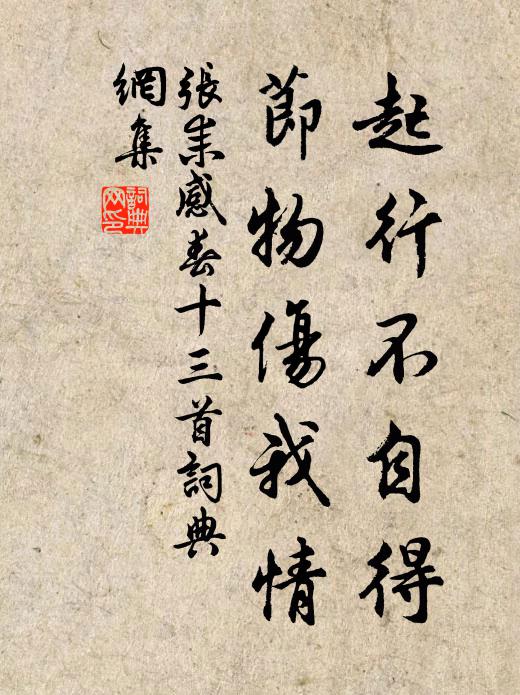 起行不自得
節物傷我情
張耒感春十三首詞典
網集
詞典
网印